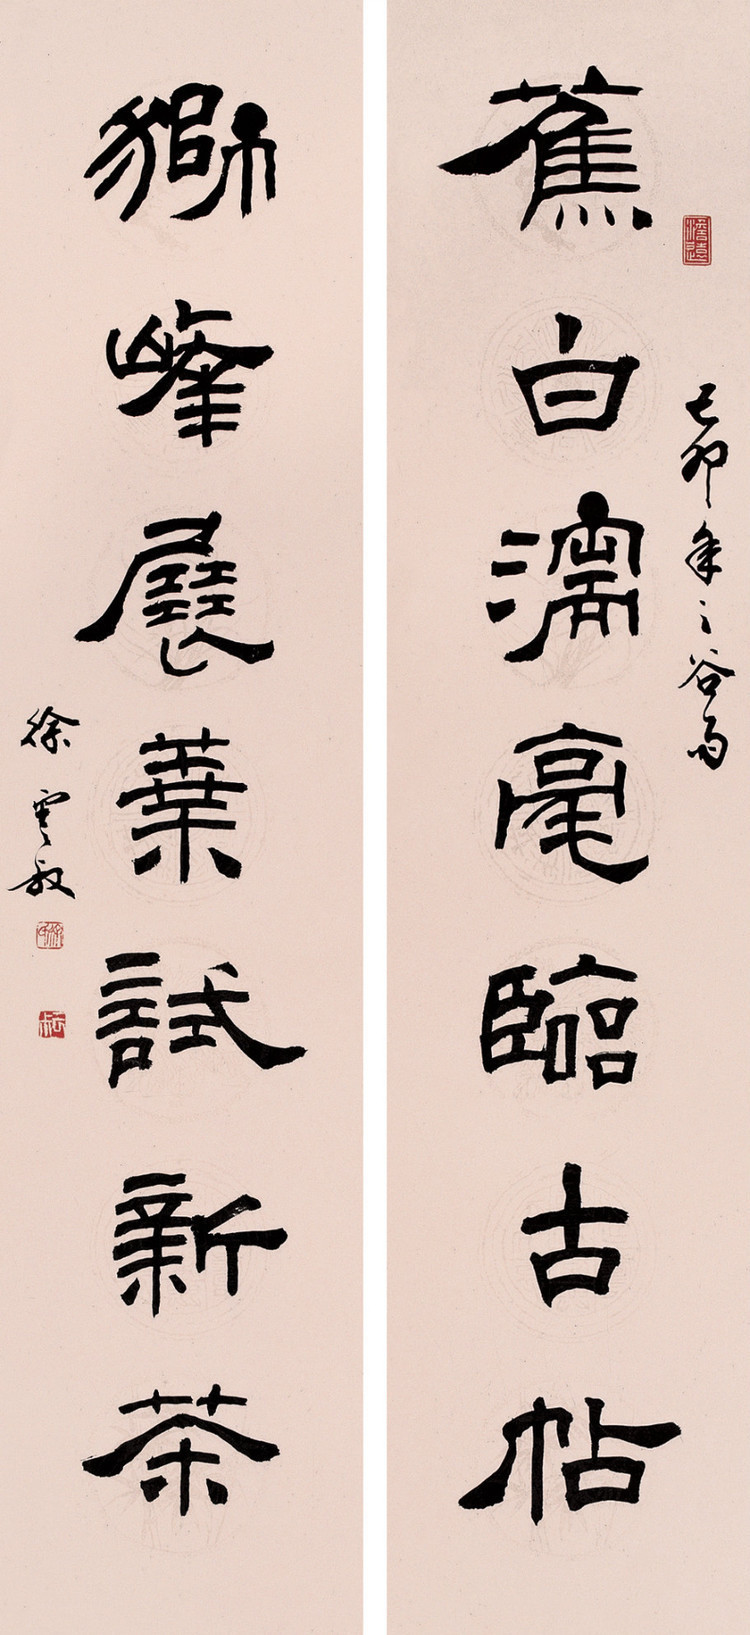 蕉白濡毫臨古帖
己卯年之谷雨
獅峰展葉試新茶
徐雲叔